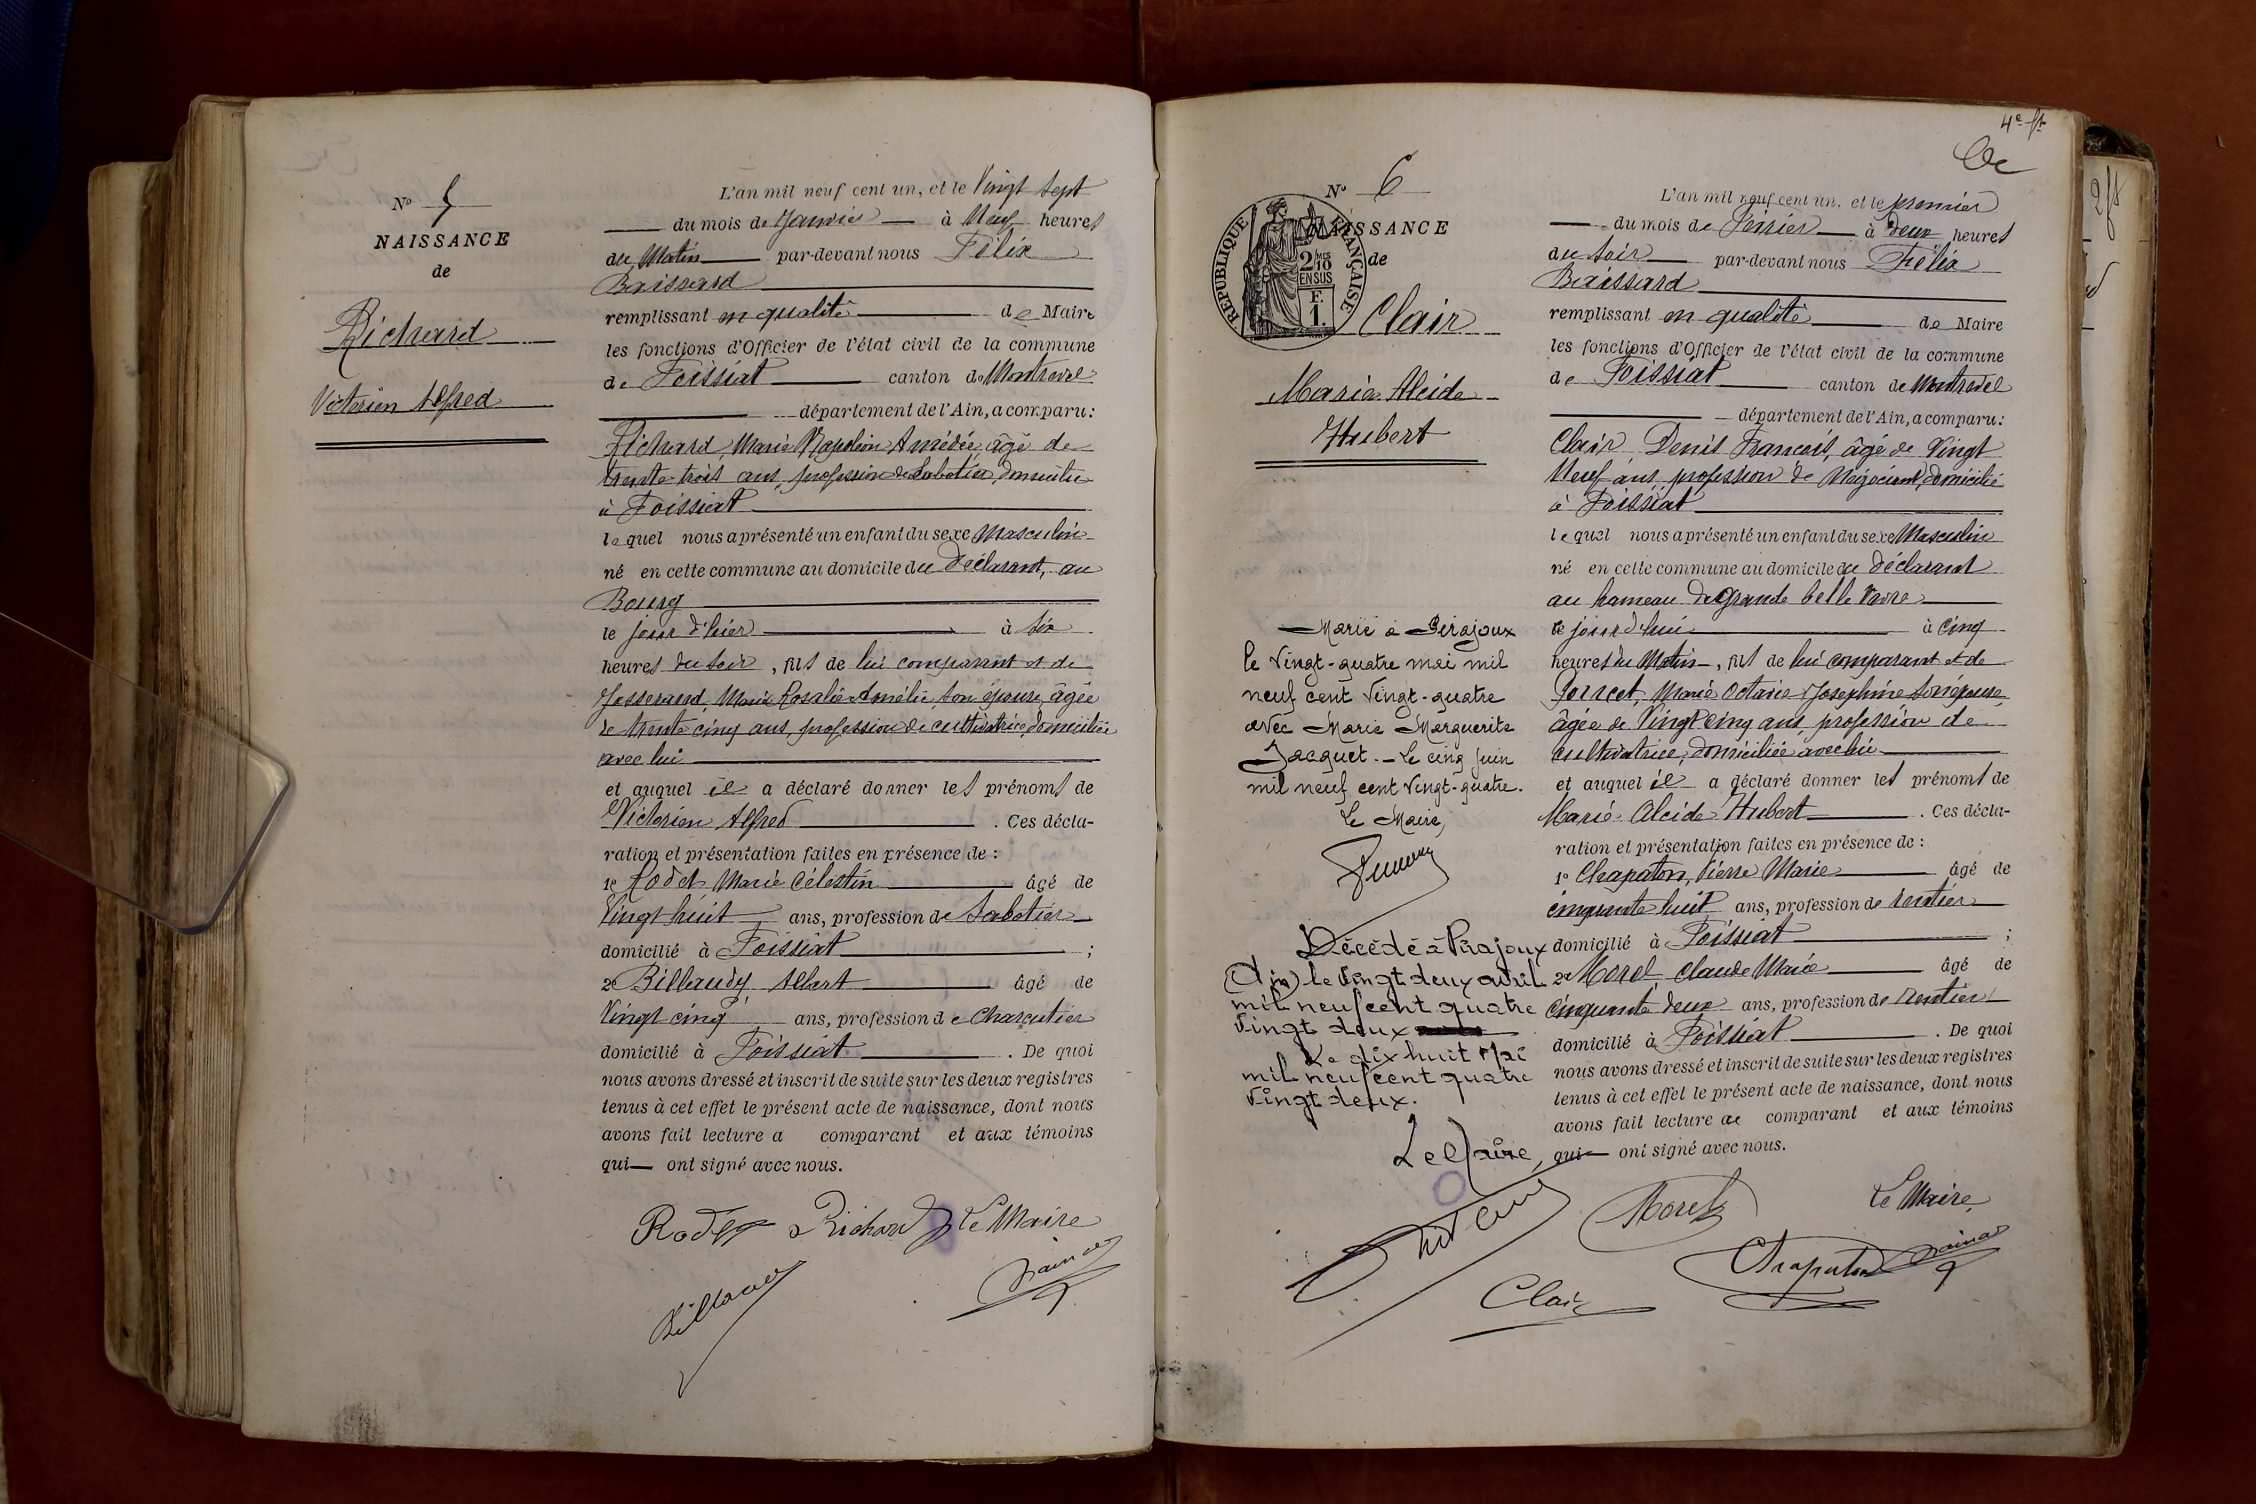 Nº 5
NAISSANCE
de
Richard
Victorien Alfred
L'an mil neuf cent un, et le Vingt Sept
du mois de Janvier à Neuf heures
du Matin par-devant nous Félix
remplissant en qualité de Maire
les fonctions d'Officier de l'état civil de la commune
de Foissiat canton de Montrevel
département de l'Ain, a comparu:
Richard, Marie Napoléon Amédée, âgé de
trente trois ans, profession de Sabotier, domicilié
à Foissiat
lequel nous a présenté un enfant du sexe Masculin
né en cette commune au domicile du Déclarant, au
Bourg
le jour d'hier à Six
heures du Soir, fils de lui comparant et de
Josserand, Marie Rosalie Amélie, son épouse, âgée
de trente cinq ans, profession de cultivatrice, domiciliée
avec lui
et auquel il a déclaré donner les prénoms de
Victorien Alfred. Ces décla-
ration et présentation faites en présence de :
1º Rodet Marie Célestin âgé de
Vingt huit ans, profession de Sabotier
domicilié à Foissiat ;
2º Billaudy Albert âgé de
Vingt cinq ans, profession de Charcutier
domicilié à Foissiat. De quoi
nous avons dressé et inscrit de suite sur les deux registres
tenus à cet effet le présent acte de naissance, dont nous
avons fait lecture a comparant et aux témoins
qui ont signé avec nous.
Rodet Richard Le Maire
4e ft
Nº 6
NAISSANCE
de
RÉPUBLIQUE FRANÇAISE
2/10
EN SUS
F.
1.
Clair
Marie Alcide
Hubert
L'an mil neuf cent un, et le premier
du mois de Février à Deux heures
du Soir par-devant nous Félix
remplissant en qualité de Maire
les fonctions d'Officier de l'état civil de la commune
de Foissiat canton de Montrevel
département de l'Ain, a comparu:
Clair Denis François, âgé de Vingt
Neuf ans, profession de Négociant, domicilié
à Foissiat
lequel nous a présenté un enfant du sexe Masculin
né en cette commune au domicile du déclarant
au hameau de grande belle Vavre
le jour d'hui à Cinq
heures du Matin, fils de lui comparant et de
Poncet, Marie Octavie Joséphine son épouse
âgée de Vingt cinq ans, profession de
cultivatrice, domiciliée avec lui
et auquel il a déclaré donner les prénoms de
Marie Alcide Hubert. Ces décla-
ration et présentation faites en présence de :
1º Chapaton, Pierre Marie âgé de
cinquante huit ans, profession de rentier
domicilié à Foissiat ;
2º Morel Claude Marie âgé de
cinquante deux ans, profession de rentier
domicilié à Foissiat. De quoi
nous avons dressé et inscrit de suite sur les deux registres
tenus à cet effet le présent acte de naissance, dont nous
avons fait lecture au comparant et aux témoins
qui ont signé avec nous.
Marié à Pirajoux
le Vingt-quatre mai mil
neuf cent Vingt-quatre
avec Marie Marguerite
Jacquet. - Le cinq juin
mil neuf cent Vingt-quatre.
Le Maire,
Décédé à Pirajoux
(Ain) le Vingt deux avril
mil neuf cent quatre
Vingt deux
Le dix huit Mai
mil neuf cent quatre
Vingt deux.
Le Maire,
Morel Le Maire,
Chapaton
Clair
2 ft